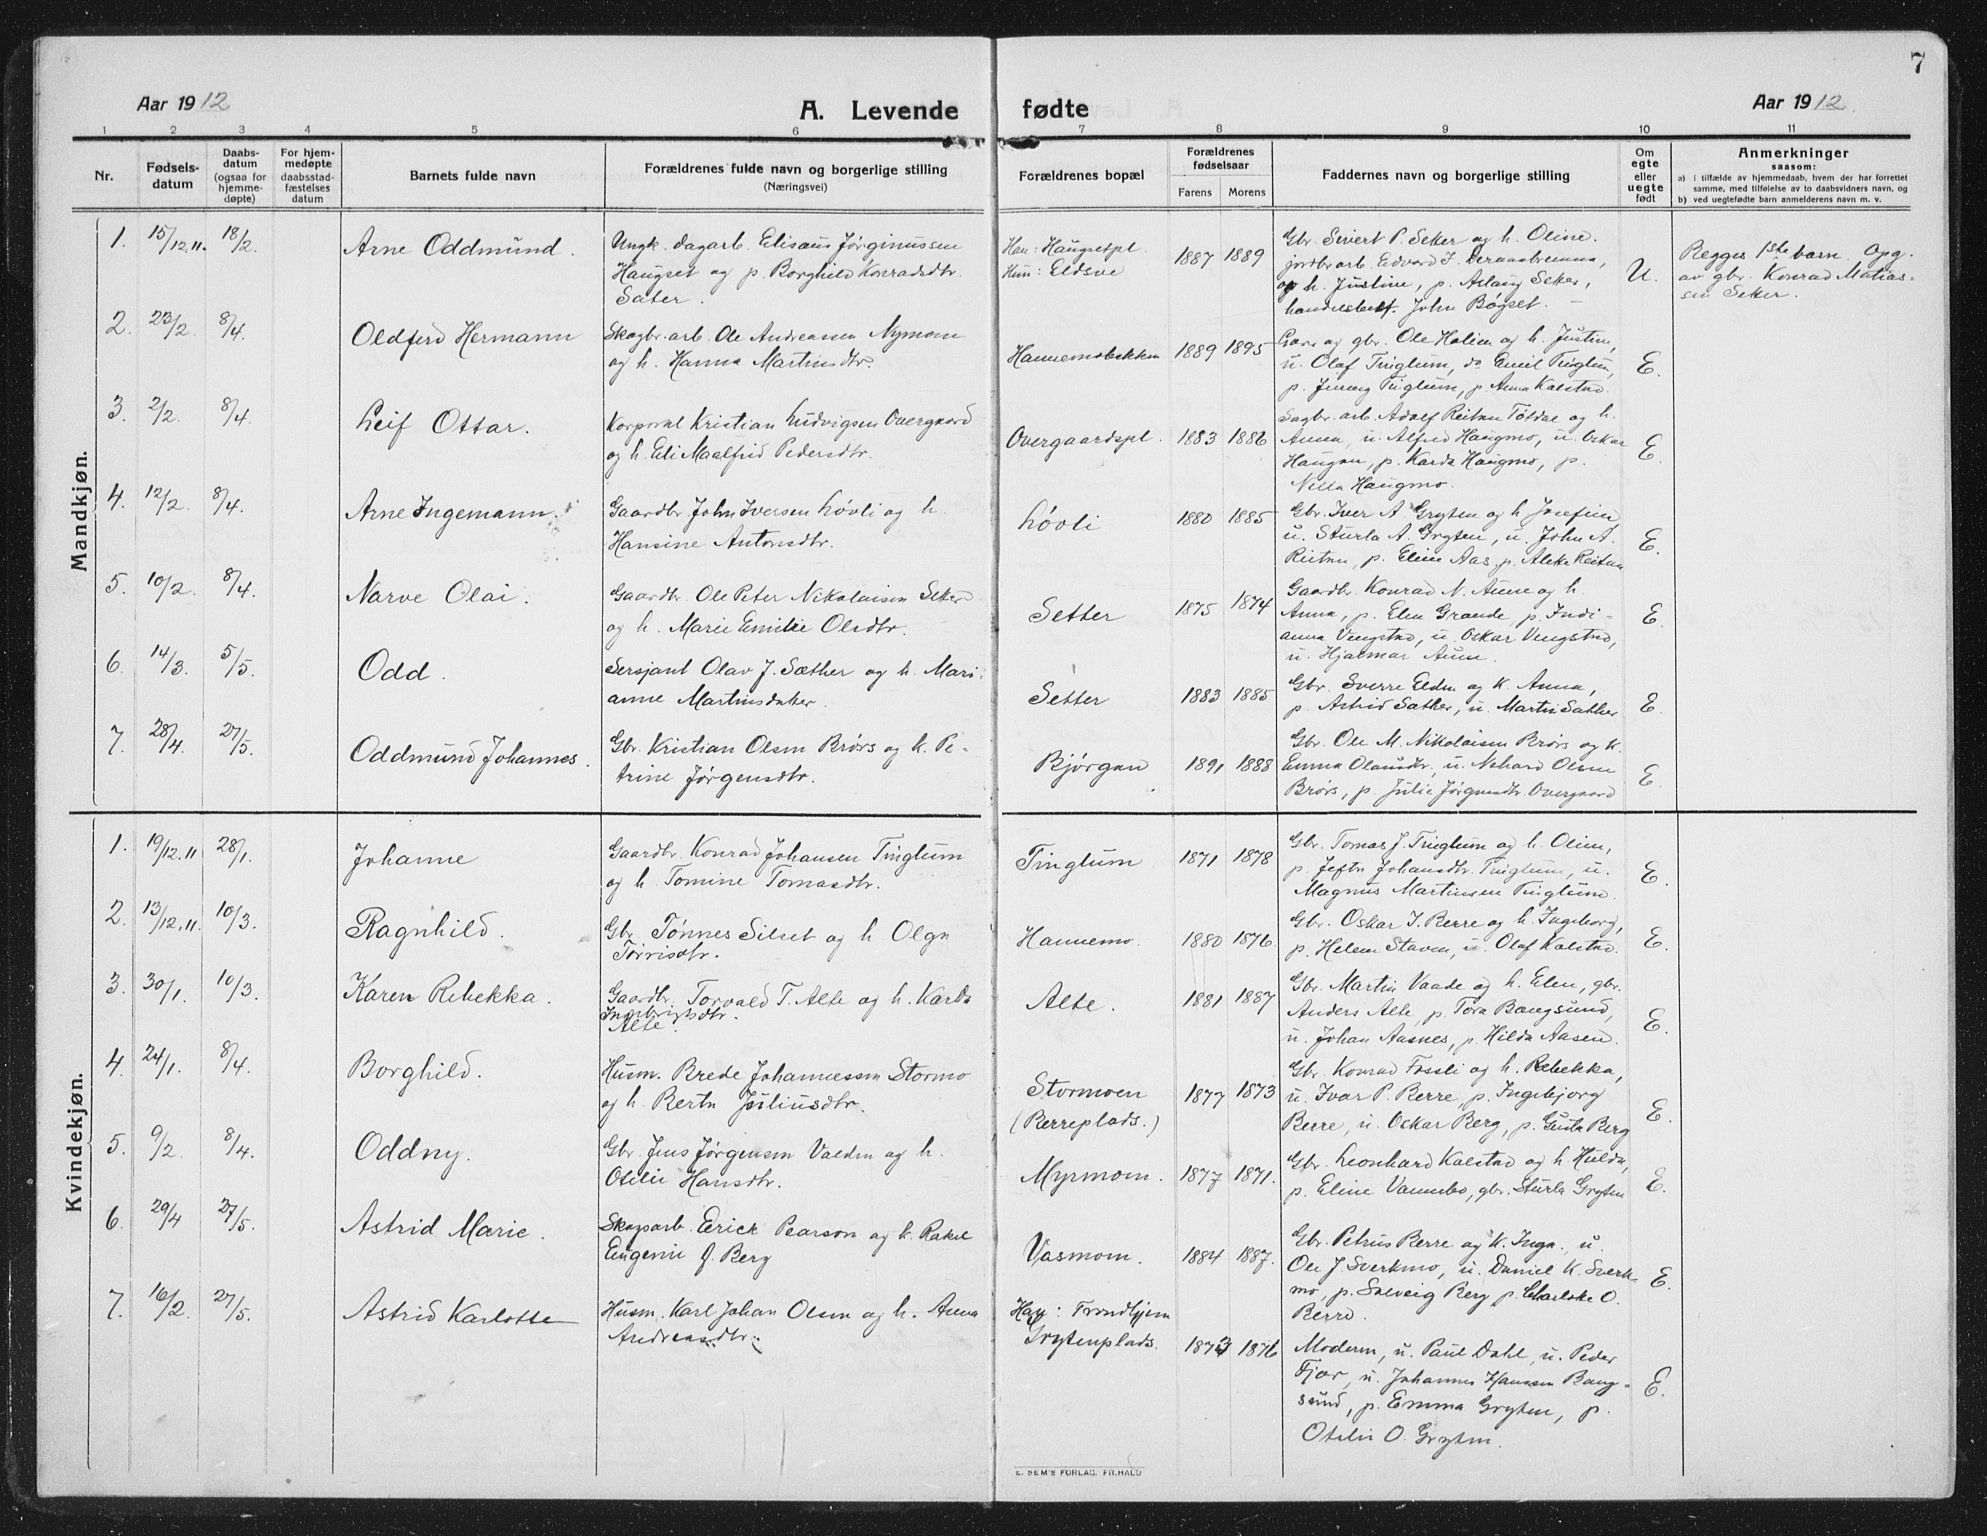 7
Aar 1912
A. Levende fødte
Aar 1912.
1 2 3 4 5 6 7 8 9 10 11
Nr.
Fødsels-
datum
Daabs-
datum
(ogsaa for
hjemme-
døpte)
For hjem-
medøpte
daabsstad-
fæstelses
datum
Barnets fulde navn
Forældrenes fulde navn og borgerlige stilling
(Næringsvei)
Forældrenes bopæl
Forældrenes
fødselsaar
Farens
Morens
Faddernes navn og borgerlige stilling
Om
egte
eller
uegte
født
Anmerkninger
saasom:
a) i tilfælde av hjemmedaab, hvem der har forrettet
samme, med tilføielse av to daabsvidners navn, og
b) ved uegtefødte barn anmelderens navn m. v.
Mandkjøn.
1. 15/12.11. 18/2. Arne Oddmund.
Ungk. dagarb. Elisæus Jørginussen
Haugset og p. Borghild Konradsdtr.
Sæter.
Han: Haugsetpl.
Hun: Eldsve
1887 1889
Gbr. Sivert P. Seker og h. Oline.
jordbr. arb. Edvard J.
og h. Justine, p. Aslaug Seker,
handelsbest. John Bøgset.
U.
Begges 1ste barn. Opg.
av gbr. Konrad Matias-
sen Seker.
2. 23/2. 8/4. Oldferd Hermann
Skogbr. arb. Ole Andreassen Nymoen
og h. Hanna Martinsdtr.
Hannemobakken
1889 1895
og gbr. Ole Holien og h. Justine,
u. Olaf Tinglum, do Emil Tinglum,
p. Jenny Tinglum, p. Anna Kalstad.
E.
3. 2/2. 8/4. Leif Ottar.
Korporal Kristian Ludvigsen Overgaard
og h. Eli Maalfrid Pedersdtr.
Overgaardspl.
1883 1886
Sagbr. arb. Adolf Reitan Tøldal og h.
Anna, u. Alfred Haugmo, u. Oskar
Haugan, p. Karda Haugmo, p.
Nella Haugmo.
E.
4. 12/2. 8/4. Arne Ingemann.
Gaardbr. John Iversen Løvli og h.
Hansine Antonsdtr.
Løvli
1880 1885
Gbr. Iver A Gryten og h. Josefine
u. Sturla A. Gryten, u. John A.
Reitan, p. Eline Aas, p. Aleke Reitan
E.
5. 10/2. 8/4. Narve Olai.
Gaardbr. Ole Peter Nikolaisen Seker
og h. Marie Emilie Olsdtr.
Setter
1875 1874
Gaardbr. Konrad N. Aune og h.
Anna, p. Elen Grande, p. Indi-
anna Vengstad, u. Oskar Vengstad,
u. Hjalmar Aune.
E.
6. 14/3. 5/5. Odd.
Sersjant Olav J. Sæther og h. Mari-
anne Martinsdatter.
Setter
1883 1885
Gbr. Sverre Elden og k. Anna,
p. Astrid Sæther, u. Martin Sæther
E.
7. 28/4. 27/5. Oddmund Johannes.
Gbr. Kristian Olsen Brørs og h. Pe-
trine Jørgensdtr.
Bjørgan
1891 1888
Gbr. Ole M. Nikolaisen Brørs og k.
Emma Olausdtr., u. Nohard Olsen
Brørs, p. Julie Jørgensdtr. Overgaard
E.
Kvindekjøn.
1. 19/12.11 28/1. Johanne
Gaardbr. Konrad Johansen Tinglum
og h. Tomine Tomasdtr.
Tinglum
1871 1878
Gbr. Tomas J. Tinglum og h. Oline,
p. Jefta Johansdtr. Tinglum, u.
Magnus Martinsen Tinglum.
E.
2. 13/12.11. 10/3. Ragnhild.
Gbr. Tønnes Silset og h. Olga
Torrisdtr.
Hannemo.
1880 1876.
Gbr. Oskar I. Berre og h. Ingeborg,
p. Helene Staven, u. Olaf Kalstad.
E.
3. 30/1. 10/3. Karen Rebekka.
Gaardbr. Torvald T. Alte og h. Karla
Ingebrigtsdtr.
Alte.
Alte.
1881 1887
Gbr. Martin Vaade og h. Elen, gbr.
Anders Alte, p. Tora Bangsund,
u. Johan Aasnes, p. Hilda Aasen.
E.
4. 24/1. 8/4. Borghild.
Husm. Brede Johannessen Stormo
og h. Berta Juliusdtr.
Stormoen
(Berreplads.)
1877 1873
Gbr. Konrad Fossli og h. Rebekka,
u. Ivar P. Berre p. Ingebjorg
Berre, u. Oskar Berg, p. Gusta Berg
E.
5. 9/2. 8/4. Oddny.
Gbr. Jens Jørgensen Valden og h.
Otelie Hansdtr.
Myrmoen.
1877 1871.
Gbr. Leonhard Kalstad og h. Hulda,
p. Eline Vannebo, gbr. Sturla Gryten
E.
6. 29/4 27/5. Astrid Marie.
Skogsarb. Erick Pearson og h. Rakel
Eugenie f. Berg
Vasmoen.
1884 1887.
Gbr. Petrus Berre og k. Inga., u.
Ole J Sverkmo, u. Daniel K. Sverk-
mo, p. Solveig Berg p. Charlotte O.
Berre.
E.
7. 16/2. 27/5. Astrid Karlotte
Husm. Karl Johan Olsen og h. Anna
Andreasdtr.
Han: Trondhjem
Grytenplads.
1873 1876
Moderen, u. Paul Dahl, u. Peder
Fjær, u. Johannes Hansen Bang-
sund, p. Emma Gryten, p.
Otelie O. Gryten.
E.
E. SEM'S FORLAG, FR.HALD